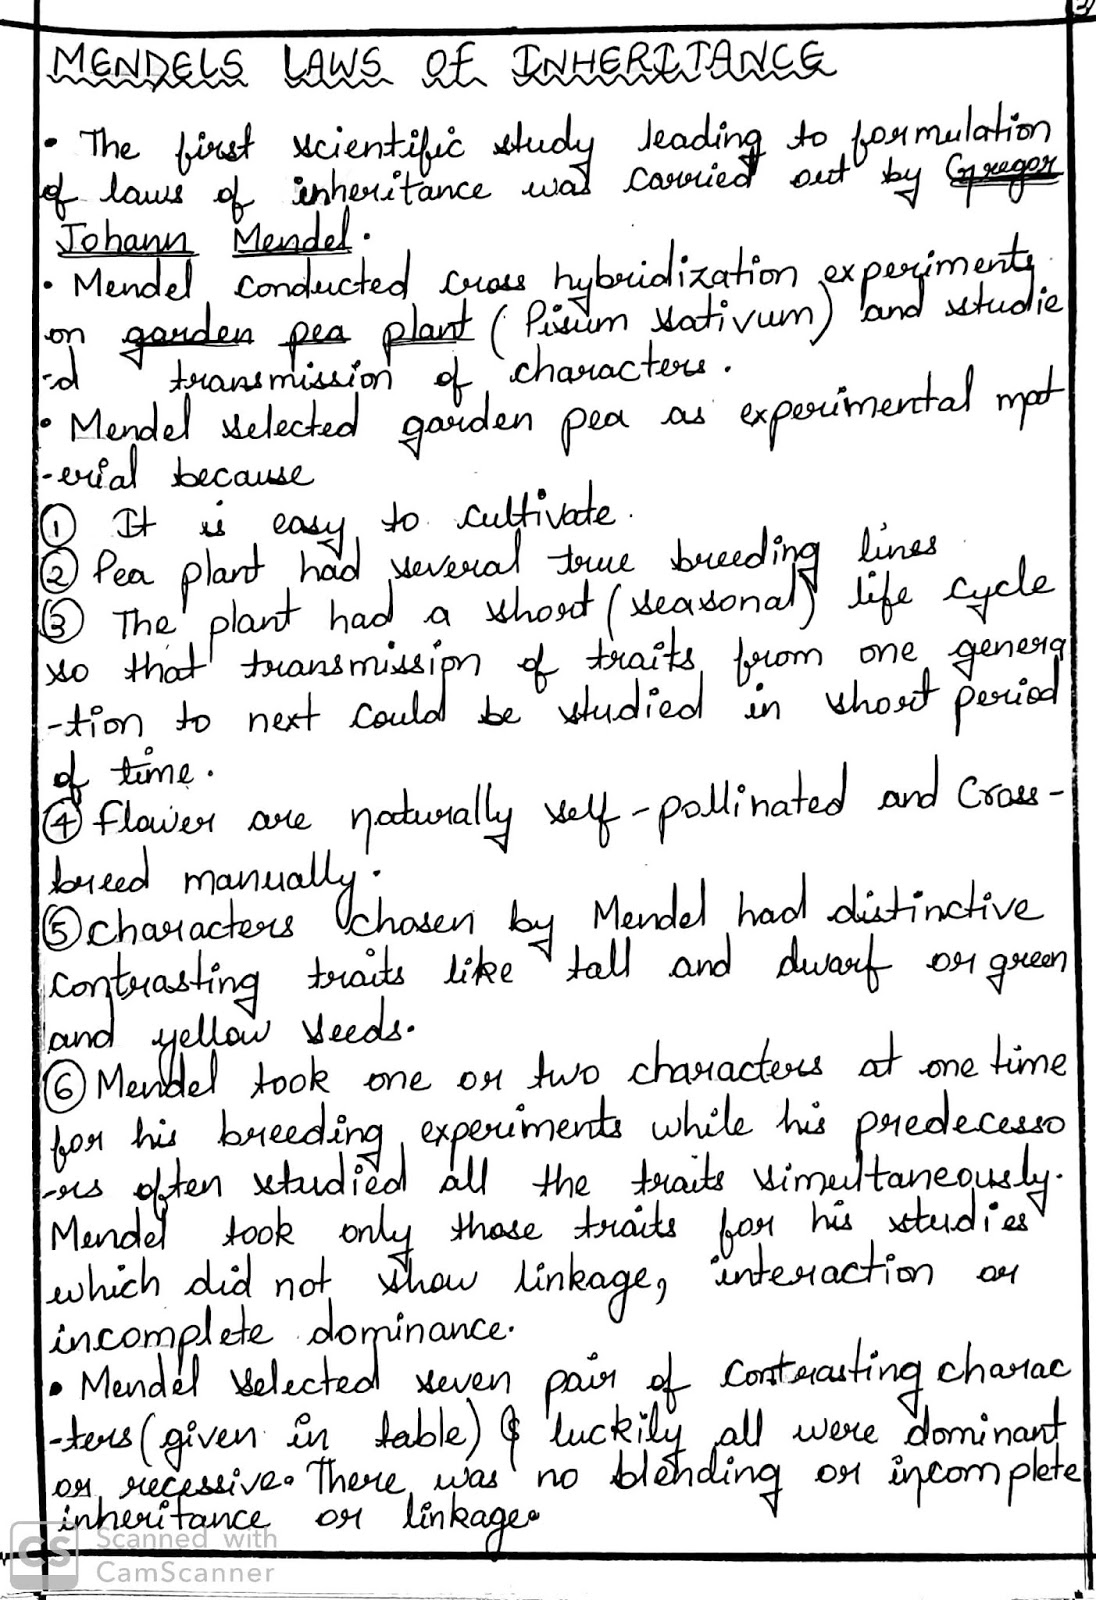 MENDELS LAWS OF INHERITANCE
• The first scientific study leading to formulation
of laws of inheritance was carried out by Gregor
Johann Mendel.
• Mendel conducted cross hybridization experiments
on garden pea plant (Pisum sativum) and studie
-d transmission of characters.
• Mendel selected garden pea as experimental mat
-erial because
① It is easy to cultivate.
② Pea plant had several true breeding lines
③ The plant had a short (seasonal) life cycle
so that transmission of traits from one genera
-tion to next could be studied in short period
of time.
④ Flower are naturally self-pollinated and Cross-
breed manually.
⑤ Characters chosen by Mendel had distinctive
contrasting traits like tall and dwarf or green
and yellow seeds.
⑥ Mendel took one or two characters at one time
for his breeding experiments while his predecesso
-rs often studied all the traits simultaneously.
Mendel took only those traits for his studies
which did not show linkage, interaction or
incomplete dominance.
• Mendel selected seven pair of contrasting charac
-ters (given in table) & luckily all were dominant
or recessive. There was no blending or incomplete
inheritance or linkage.
CS Scanned with
CamScanner